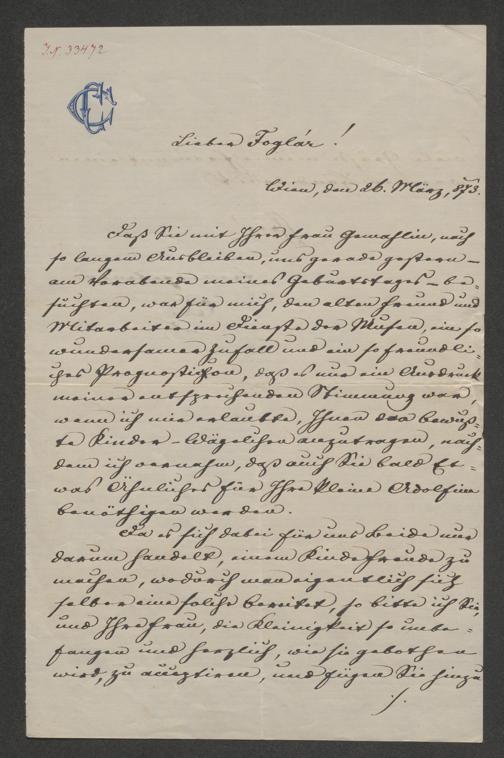 I.N. 33472
CC
Lieber Foglár!
Wien, den 26. März, 873.
Daß Sie mit Ihrer Frau Gemahlin, nach
so langem Ausbleiben, uns gerade gestern –
am Vorabende meines Geburtstages – be-
suchten, war für mich, den alten Freund und
Mitarbeiter im Dienste der Musen, ein so
wundersamer Zufall und ein so freundli-
ches Prognostikon, daß es nur ein Ausdruck
meiner entsprechenden Stimmung war,
wenn ich mir erlaubte, Ihnen das bewuß-
te Kinder-Wägelchen anzutragen, nach-
dem ich vernahm, daß auch Sie bald Et-
was Ähnliches für Ihre kleine Adolfine
benöthigen werden.
Da es sich dabei für uns Beide nur
darum handelt, einem Kinde Freude zu
machen, wodurch man eigentlich sich
selber eine solche bereitet, so bitte ich Sie,
und Ihre Frau, die Kleinigkeit so unbe-
fangen und herzlich, wie sie gebothen
wird, zu acceptiren, und fügen Sie hinzu
./.